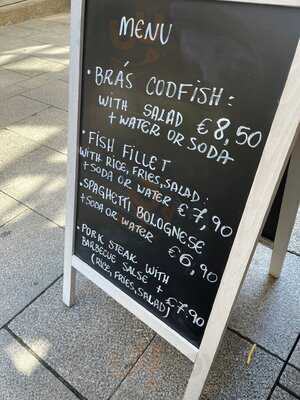 MENU
• BRÁS CODFISH:
WITH SALAD
+ WATER OR SODA €8,50
• FISH FILLET
WITH RICE, FRIES, SALAD:
+ SODA OR WATER €7,90
• SPAGHETTI BOLOGNESE
+ SODA OR WATER €6,90
• PORK STEAK WITH
BARBECUE SALSE +
(RICE, FRIES, SALAD) €7.90